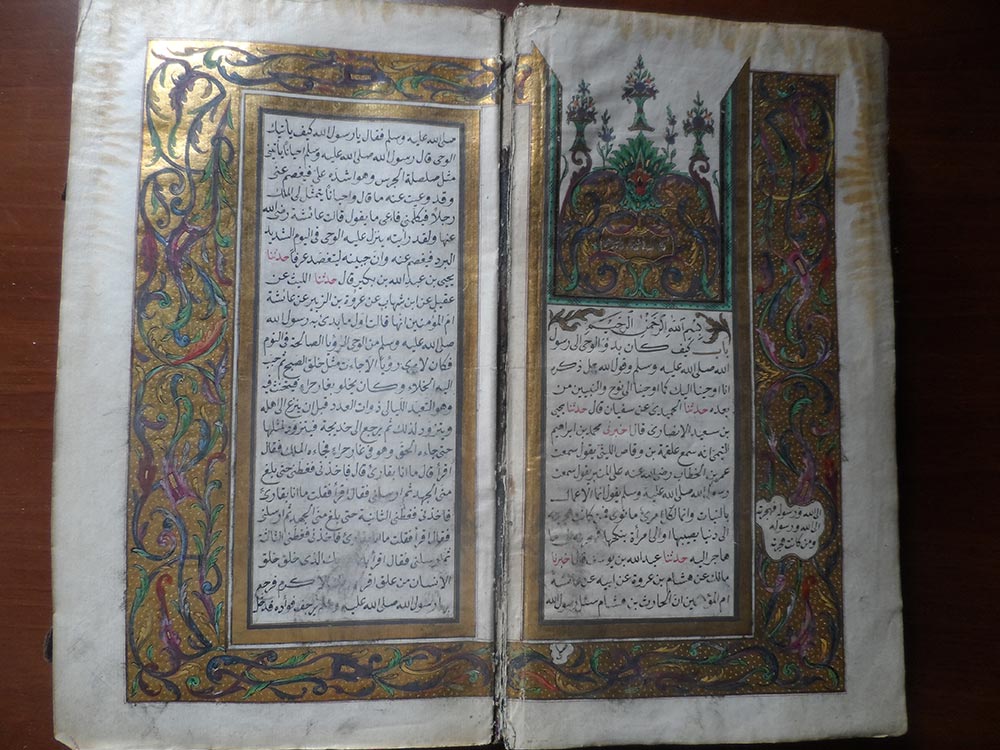 بسم الله الرحمن الرحيم
باب كيف كان بدؤ الوحى الى رسول
الله صلى الله عليه وسلم وقول الله جل ذكره
انا اوحينا اليك كما اوحينا الى نوح والنبيين من
بعده حدثنا الحميدى عن سفيان قال حدثنا يحيى
بن سعيد الانصارى قال اخبرنى محمد بن ابراهيم
التيمى انه سمع علقمة بن وقاص الليثى يقول سمعت
عمر بن الخطاب رضى الله عنه على المنبر يقول سمعت
رسول الله صلى الله عليه وسلم يقول انما الاعمال
بالنيات وانما لكل امرئ ما نوى فمن كانت هجرته
الى دنيا يصيبها او الى امرأة ينكحها
هاجر اليه حدثنا عبدالله بن يوسف قال اخبرنا
مالك عن هشام بن عروة عن ابيه عن عائشة
ام المؤمنين ان الحارث بن هشام سئل رسول الله
الى الله ورسوله فهجرته
الى الله ورسوله
ومن كانت هجرته
صلى الله عليه وسلم فقال يا رسول الله كيف يأتيك
الوحى قال رسول الله صلى الله عليه وسلم احيانا يأتينى
مثل صلصلة الجرس وهو اشده على فيفصم عنى
وقد وعيت عنه ما قال واحيانا يتمثل لى الملك
رجلا فيكلمنى فاعى ما يقول قالت عائشة رضى الله
عنها ولقد رأيته ينزل عليه الوحى فى اليوم الشديد
البرد فيفصم عنه وان جبينه ليتفصد عرقا حدثنا
يحيى بن عبد الله بن بكير قال حدثنا الليث عن
عقيل عن ابن شهاب عن عروة بن الزبير عن عائشة
ام المؤمنين انها قالت اول ما بدئ به رسول الله
صلى الله عليه وسلم من الوحى الرؤيا الصالحة فى النوم
فكان لا يرى رؤيا الا جاءت مثل فلق الصبح ثم حبب
اليه الخلاء وكان يخلو بغار حراء فيتحنث فيه
وهو التعبد الليالى ذوات العدد قبل ان ينزع الى اهله
ويتزود لذلك ثم يرجع الى خديجة فيتزود لمثلها
حتى جاءه الحق وهو فى غار حراء فجاءه الملك فقال
اقرأ قال ما انا بقارئ قال فاخذنى فغطنى حتى بلغ
منى الجهد ثم ارسلنى فقال اقرأ فقلت ما انا بقارئ
فاخذنى فغطنى الثانية حتى بلغ منى الجهد ثم ارسلنى
فقال اقرأ فقلت ما انا بقارئ فاخذنى فغطنى الثالثة
ثم ارسلنى فقال اقرأ باسم ربك الذى خلق خلق
الانسان من علق اقرأ وربك الاكرم فرجع
بها رسول الله صلى الله عليه وسلم يرجف فؤاده فدخل